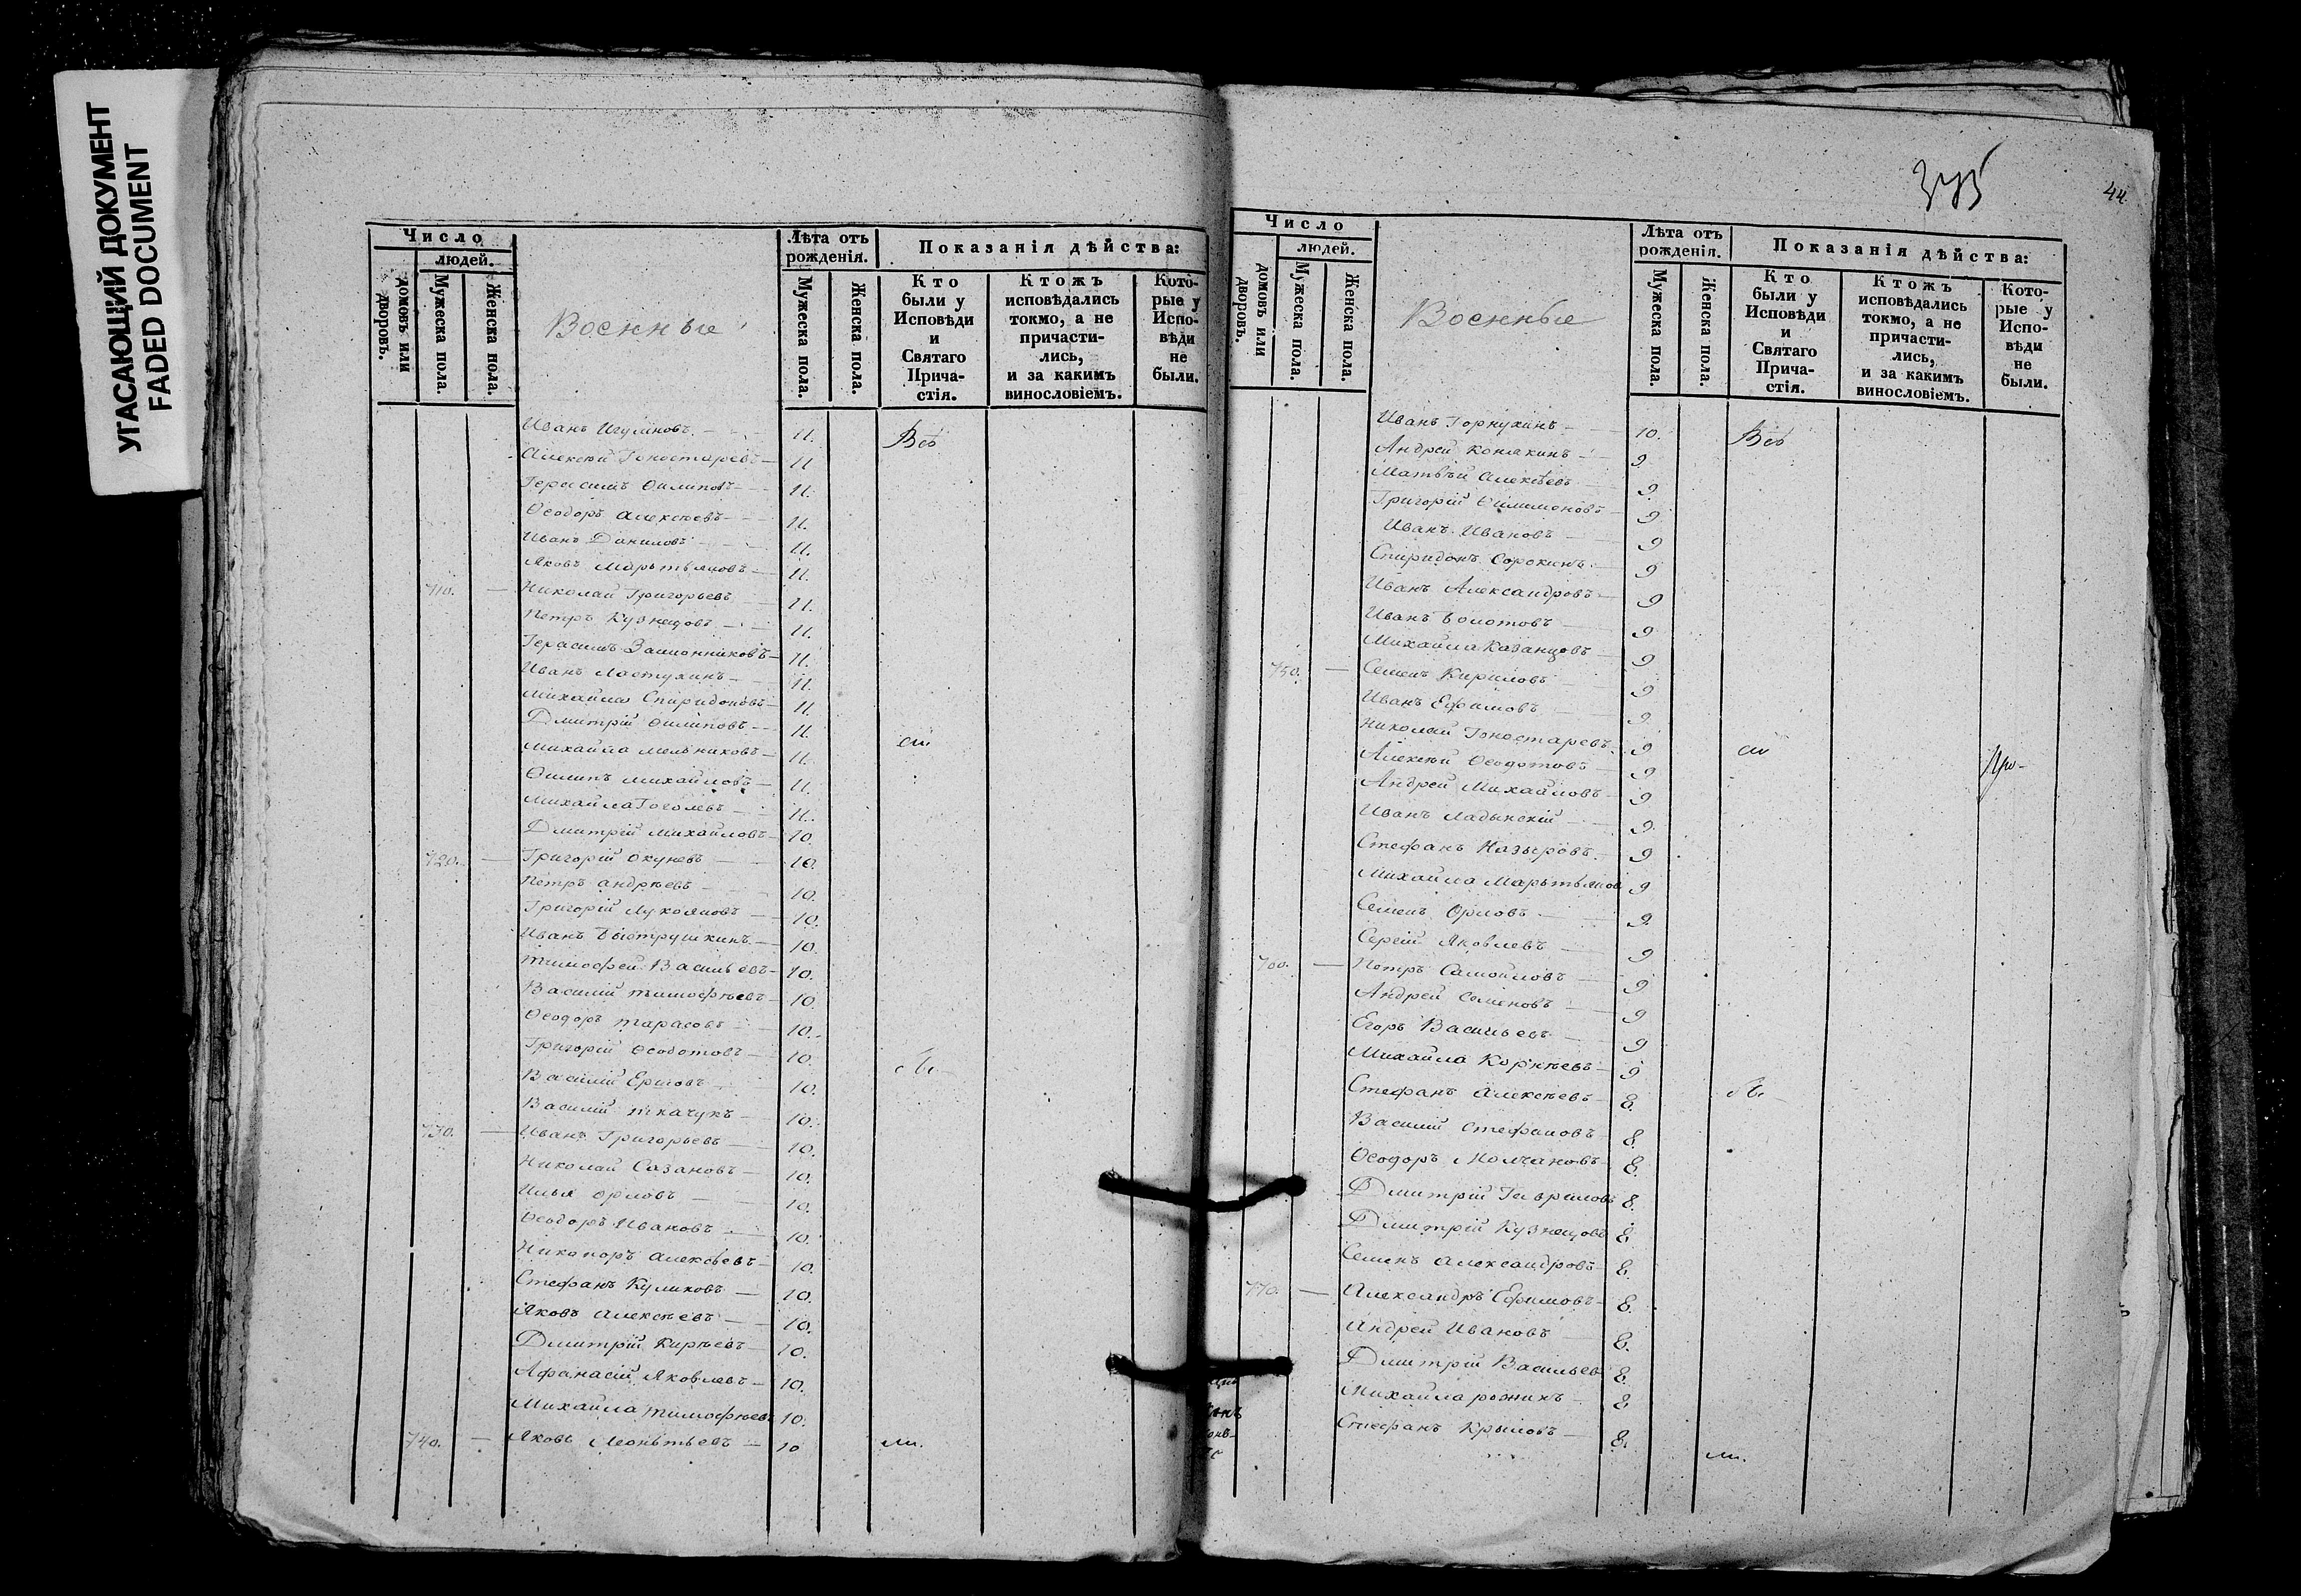 УГАСАЮЩИЙ ДОКУМЕНТ
FADED DOCUMENT
Число
людей.
домовъ или дворовъ.
Мужеска пола.
Женска пола.
Военные
Лѣта отъ рожденія.
Мужеска пола.
Женска пола.
Показанія дѣйства:
Кто были у Исповѣди и Святаго Прича-стія.
Ктожъ исповѣдались токмо, а не причасти-лись, и за какимъ винословіемъ.
Кото-рые у Испо-вѣди не были.
Иванъ 11. Всѣ
Алексѣй Гоностаревъ 11
Герасимъ Филиповъ 11.
Ѳеодоръ Алексѣевъ 11.
Иванъ Даниловъ 11.
Яковъ Мартьяновъ 11.
710. Николай Григорьевъ 11.
Петръ Кузнецовъ 11.
Герасимъ 11.
Иванъ Ластухинъ 11.
Михайла Спиридоновъ 11.
Дмитрій Филиповъ 11.
Михайла Мельниковъ 11.
Филипъ Михайловъ 11.
Михайла Гоголевъ 11.
Дмитрій Михайловъ 10.
720. Григорій Окуневъ 10.
Петръ Андрѣевъ 10.
Григорій Лукояновъ 10.
Иванъ Быструшкинъ 10.
Тимофей Васильевъ 10.
Василій Тимофѣевъ 10
Ѳеодоръ Тарасовъ 10.
Григорій Ѳеодотовъ 10.
Василій Ершовъ 10.
Василій Ткачукъ 10.
730. Иванъ Григорьевъ 10.
Николай Сазановъ 10.
Илья Орловъ 10.
Ѳеодоръ Ивановъ 10.
Никоноръ Алексѣевъ 10.
Стефанъ Куликовъ 10.
Яковъ Алексѣевъ 10.
Дмитрій Кирѣевъ 10.
Афанасій Яковлевъ 10.
Михайла Тимофѣевъ 10.
740. Яковъ Леонтьевъ 10 ли.
375
44.
Число
людей.
домовъ или дворовъ.
Мужеска пола.
Женска пола.
Военные
Лѣта отъ рожденія.
Мужеска пола.
Женска пола.
Показанія дѣйства:
Кто были у Исповѣди и Святаго Прича-стія.
Ктожъ исповѣдались токмо, а не причасти-лись, и за какимъ винословіемъ.
Кото-рые у Испо-вѣди не были.
Иванъ Горнухинъ 10. Всѣ
Андрей Конякинъ 9.
Матвѣй Алексѣевъ 9.
Григорій Филимоновъ 9
Иванъ Ивановъ 9
Спиридонъ Сорокинъ 9
Иванъ Александровъ 9
Иванъ Болотовъ 9
Михайла Казанцовъ 9
750. Семенъ Кириловъ 9
Иванъ Ефимовъ 9.
Николай Гоностаревъ 9
Алексѣй Ѳеодотовъ 9
Андрей Михайловъ 9
Иванъ Ладынскій 9.
Стефанъ Назыровъ 9
Михайла Мартьянов 9
Семенъ Орловъ 9.
Сергій Яковлевъ 9
760. Петръ Самойловъ 9
Андрей Семеновъ 9
Егоръ Васильевъ 9
Михайла Корнѣевъ 9
Стефанъ Алексѣевъ 8.
Василій Стефановъ 8.
Ѳеодоръ Молчановъ 8.
Дмитрій Гавриловъ 8.
Дмитрій Кузнецовъ 8.
Семенъ Александровъ 8.
770. Александръ Ефимовъ 8.
Андрей Ивановъ 8.
Дмитрій Васильевъ 8.
Михайла 8
Стефанъ Крыловъ 8.
ли.